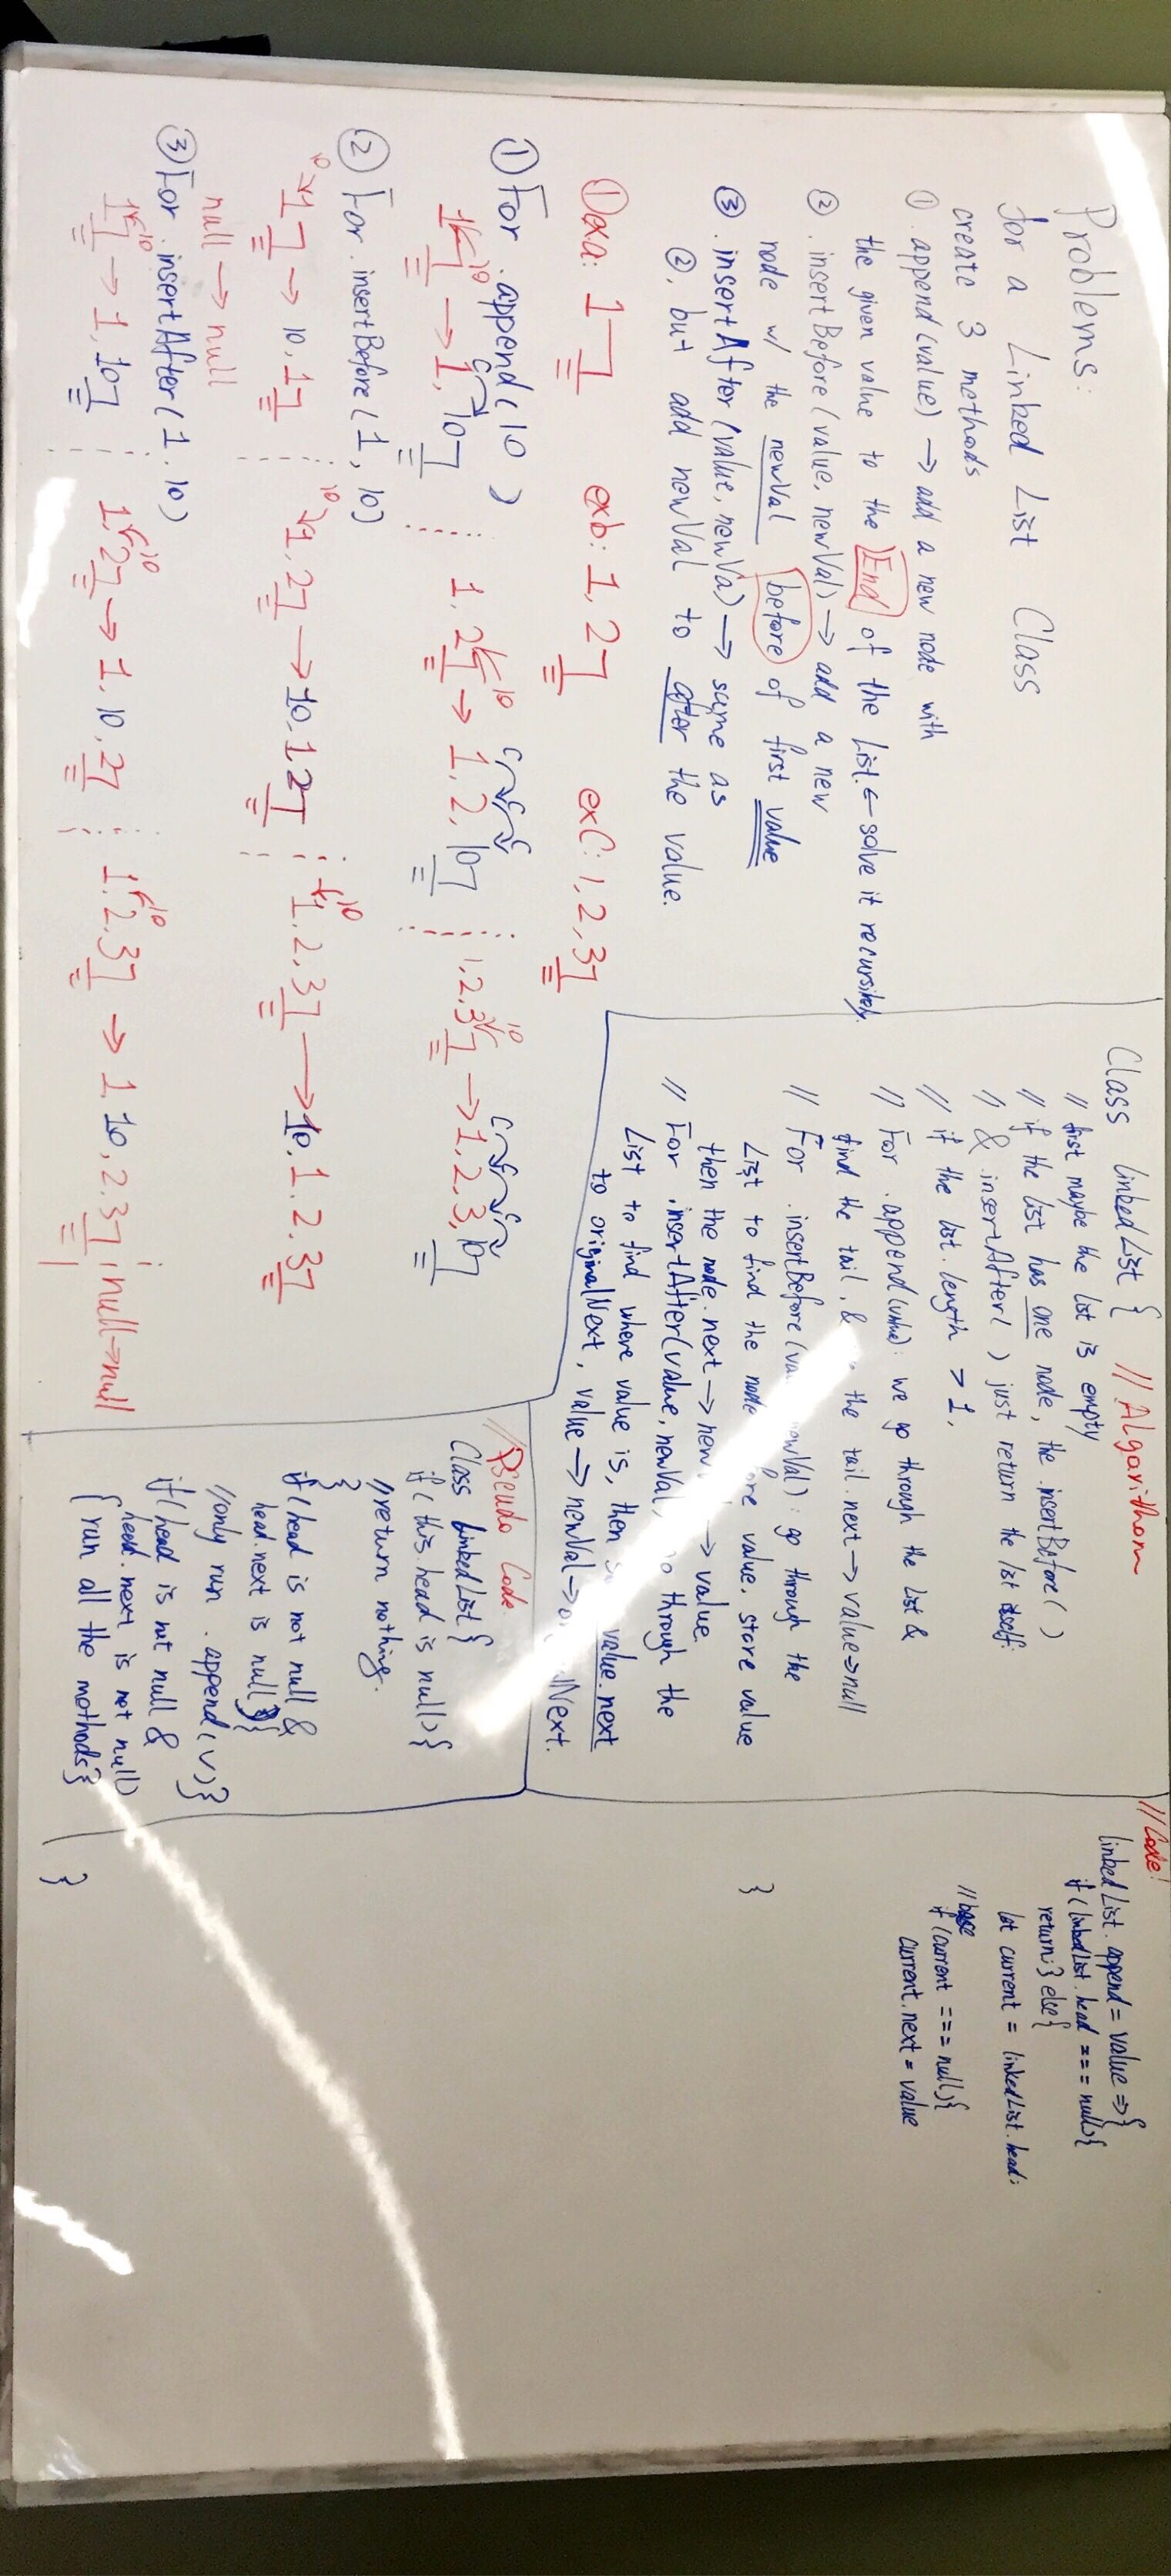 Problems:
for a Linked List Class
create 3 methods
① .append(value) → add a new node with
the given value to the End of the list ← solve it recursively.
② .insertBefore(value, newVal) → add a new
node w/ the newVal before of first value
③ .insertAfter(value, newVa) → same as
②, but add newVal to after the value.
① exa: 1 exb: 1, 2 exC: 1, 2, 3
① For .append(10)
1 10 → 1, 10 1, 2 10 → 1, 2, 10 1, 2, 3 10 → 1, 2, 3, 10
② For .insertBefore(1, 10)
10 1 → 10, 1 10 1, 2 → 10, 1 2 10 1, 2, 3 → 10, 1, 2, 3
null → null
③ For .insertAfter(1, 10)
1 10 → 1, 10 1, 2 10 → 1, 10, 2 1, 2, 3 10 → 1, 10, 2, 3 null → null
Class linkedList { // Algarithom
// first maybe the list is empty
// if the list has one node, the .insertBefore( )
// & .insertAfter( ) just return the list itself.
// if the list.length > 1,
// For .append(value): we go through the list &
find the tail, & the tail.next → value → null
// For .insertBefore( ): go through the
List to find the node value, store value
then the node.next → → value.
// For .insertAfter(value, newVal through the
List to find where value is, then value.next
to originalNext, value → newVal →
// Pseudo Code.
Class LinkedList {
if (this.head is null) {
//return nothing.
}
if (head is not null &
head.next is null) {
//only run .append(v) }
if (head is not null &
head.next is not null)
{ run all the mothods }
}
//Code!
linkedList.append = value => {
if (linkedList.head === null) {
return; } else {
let current = linkedList.head;
//base
if (current === null) {
current.next = value
}